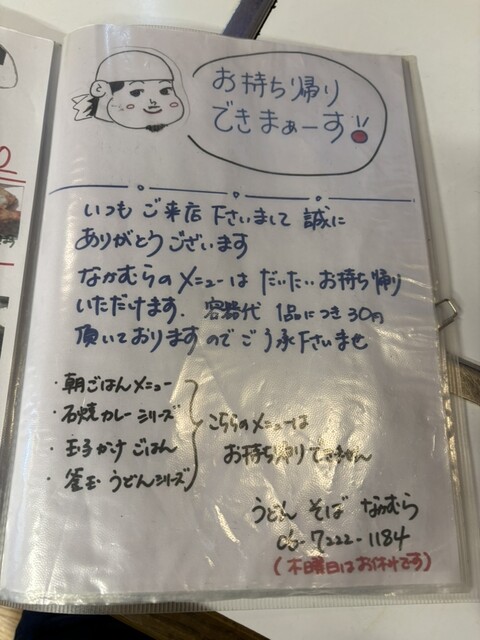 お持ち帰り
できまぁーす!!
いつもご来店下さいまして 誠に
ありがとうございます
なかむらのメニューは だいたいお持ち帰り
いただけます. 容器代 1品につき30円
頂いておりますのでごう承下さいませ
・朝ごはんメニュー
・石焼カレーシリーズ
・玉子かけごはん
・釜玉うどんシリーズ
こちらのメニューは
お持ち帰りできません
うどん そば なかむら
06-7222-1184
(木曜日はお休みです)